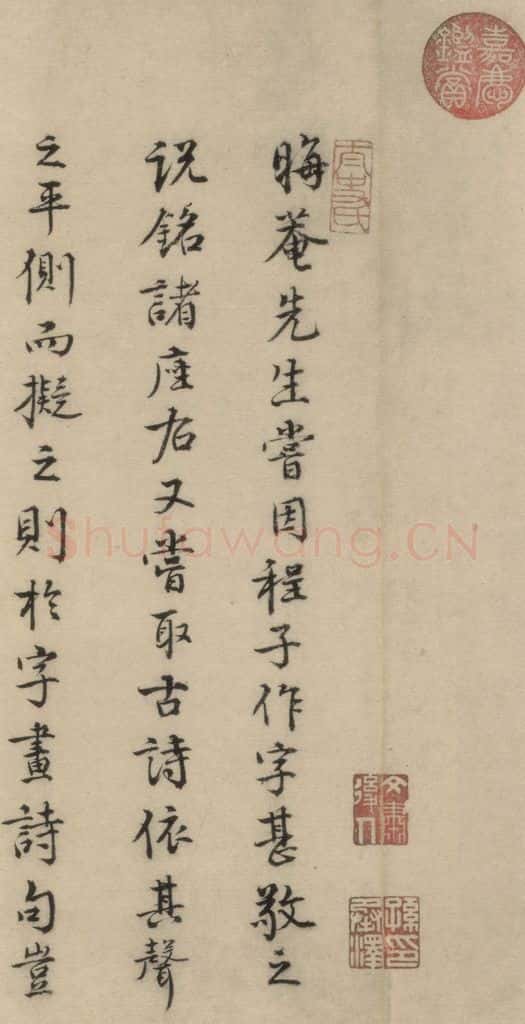 晦菴先生嘗因程子作字甚敬之
説銘諸座右又嘗取古詩依其聲
之平側而擬之則於字畫詩句豈
嘉慶鑑賞
孫承澤印
Shufawang.CN